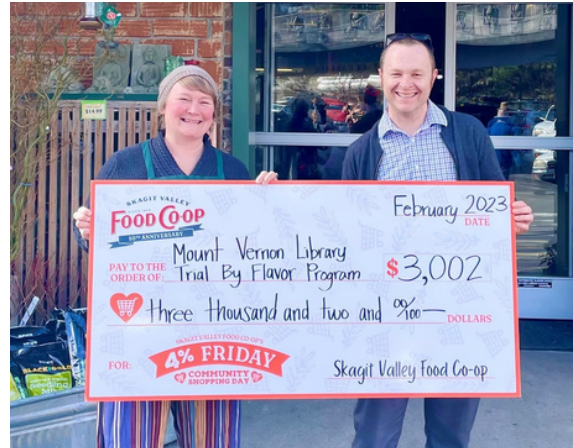 $14.99
SKAGIT VALLEY
FOOD CO-OP
50TH ANNIVERSARY
February 2023
DATE
PAY TO THE
ORDER OF:
Mount Vernon Library
Trial By Flavor Program
$3,002
three thousand and two and 00/100 —
DOLLARS
FOR:
SKAGIT VALLEY FOOD CO-OP'S
4% FRIDAY
COMMUNITY
SHOPPING DAY
Skagit Valley Food Co-op
BLACK GOLD